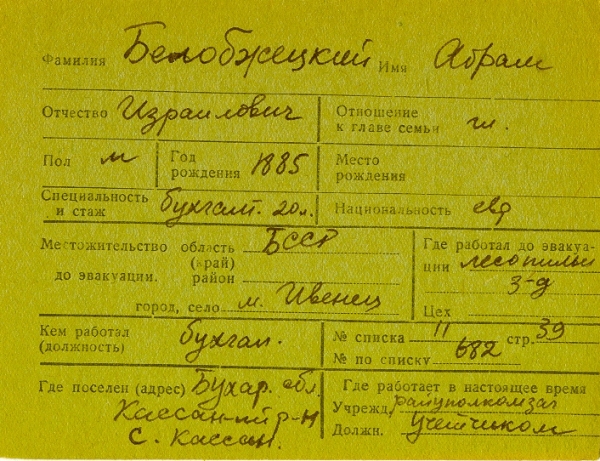 Фамилия Белобжецкий Имя Абрам
Отчество Израилович Отношение к главе семьи гл.
Пол м Год рождения 1885 Место рождения
Специальность и стаж бухгалт. 20 л. Национальность евр
Местожительство область БССР
(край)
до эвакуации. район
город, село м. Ивенец
Где работал до эвакуа-
ции лесопильн
з-д
Цех
Кем работал (должность) бухгал.
№ списка 11 стр. 39
№ по списку 682
Где поселен (адрес) Бухар. обл.
Кассан-ий р-н
с. Кассан.
Где работает в настоящее время
Учрежд. райуполкомзаг
Должн. учетчиком